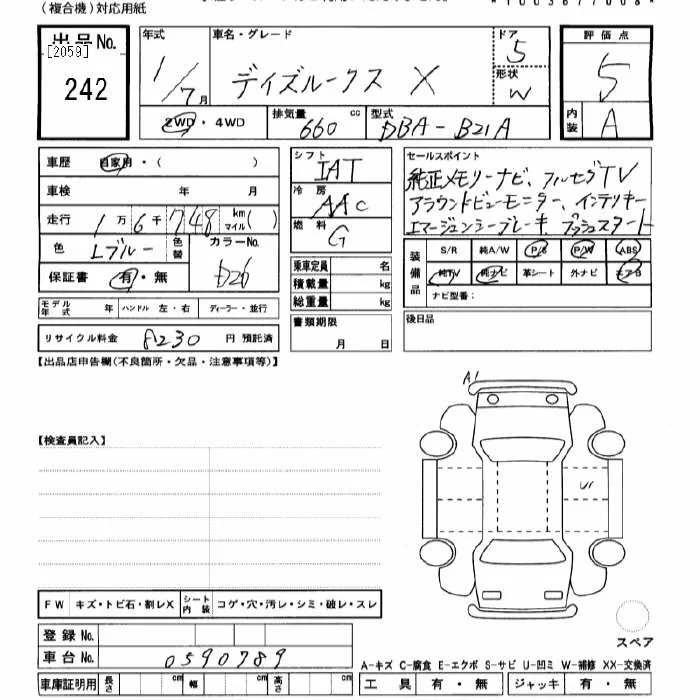 (複合機)対応用紙
出品No.
[2059]
242
年式
1/7月
車名・グレード
デイズルークス X
ドア
5
形状
W
評価点
5
内装
A
2WD・4WD
排気量
660 cc
型式
DBA-B21A
車歴 自家用・( )
車検 年 月
走行 1万6千748 km マイル( )
色 Lブルー 色替
カラーNo.
B26
保証書 有・無
モデル年式 年 ハンドル 左・右 ディーラー・並行
リサイクル料金 8230 円 預託済
シフト
IAT
冷房
AAC
燃料
G
乗車定員 名
積載量 kg
総重量 kg
書類期限
月 日
セールスポイント
純正メモリーナビ、フルセグTV
アラウンドビューモニター、インテリキー
エマージェンシーブレーキ、プッシュスタート
装備品
S/R 純A/W P/S P/W ABS
純TV 純ナビ 革シート 外ナビ エアB
ナビ型番:
後日品
【出品店申告欄(不良箇所・欠品・注意事項等)】
A1
【検査員記入】
FW キズ・トビ石・割レX シート内装 コゲ・穴・汚レ・シミ・破レ・スレ
登録No.
車台No. 0590789
車庫証明用 長さ cm 幅 cm 高さ cm
スペア
A-キズ C-腐食 E-エクボ S-サビ U-凹ミ W-補修 XX-交換済
工具 有・無 ジャッキ 有・無